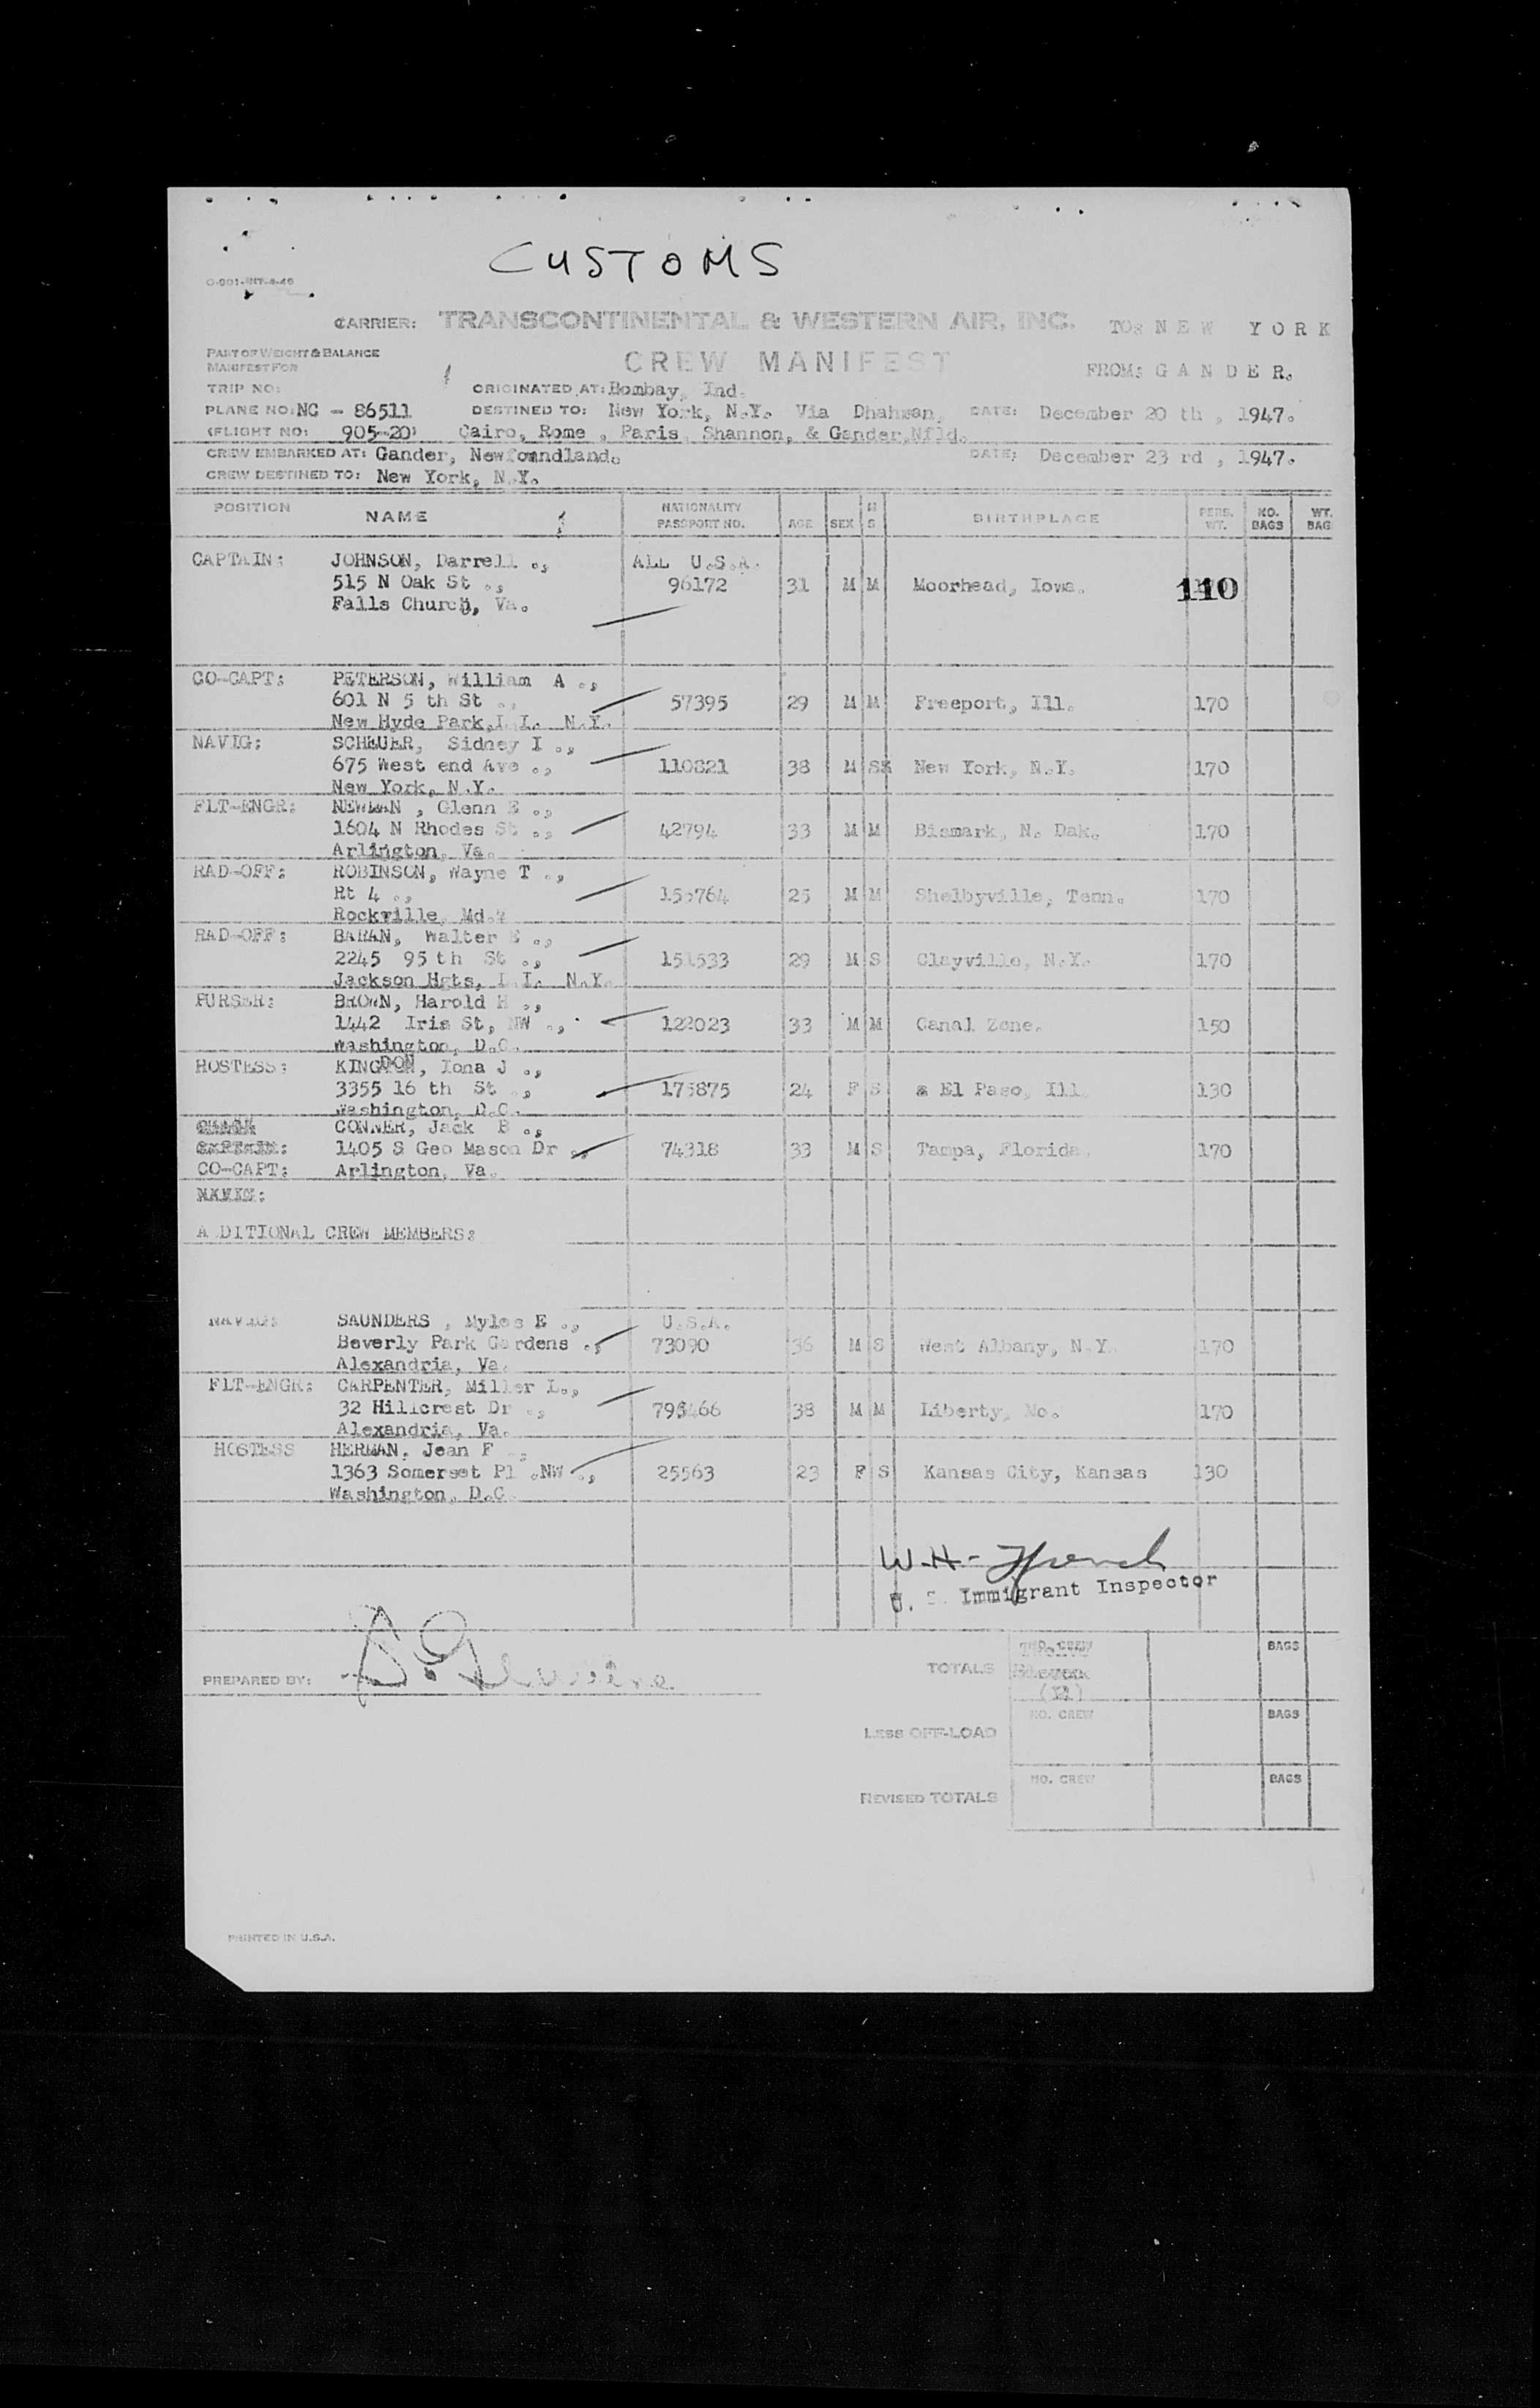 CUSTOMS
O-901-INT-4-46
CARRIER: TRANSCONTINENTAL & WESTERN AIR, INC. TO: N E W Y O R K
PART OF WEIGHT & BALANCE
MANIFEST FOR
CREW MANIFEST
FROM: G A N D E R.
TRIP NO: ORIGINATED AT: Bombay, Ind.
PLANE NO: NC - 86511 DESTINED TO: New York, N.Y. Via Dhahran, DATE: December 20 th , 1947.
(FLIGHT NO: 905-20) Cairo, Rome , Paris, Shannon, & Gander,Nfld.
CREW EMBARKED AT: Gander, Newfoundland. DATE: December 23 rd , 1947.
CREW DESTINED TO: New York, N.Y.
POSITION NAME NATIONALITY PASSPORT NO. AGE SEX M S BIRTHPLACE PERS. WT. NO. BAGS WT. BAG
CAPTAIN: JOHNSON, Darrell ., ALL U.S.A.
515 N Oak St ., 96172 31 M M Moorhead, Iowa. 110
Falls Church, Va.
CO-CAPT: PETERSON, William A .,
601 N 5 th St ., 57395 29 M M Freeport, Ill. 170
New Hyde Park,L.I. N.Y.
NAVIG: SCHEUER, Sidney I .,
675 West end Ave ., 110821 38 M S New York, N.Y. 170
New York, N.Y.
FLT-ENGR: NEWMAN , Glenn E .,
1604 N Rhodes St ., 42794 33 M M Bismark, N. Dak. 170
Arlington, Va.
RAD-OFF: ROBINSON, Wayne T .,
Rt 4 ., 155764 25 M M Shelbyville, Tenn. 170
Rockville, Md.
RAD-OFF: BARAN, Walter E .,
2245 95 th St ., 151533 29 M S Clayville, N.Y. 170
Jackson Hgts, L.I. N.Y.
PURSER: BROWN, Harold H .,
1442 Iris St, NW ., 122023 33 M M Canal Zone. 150
Washington, D.C.
HOSTESS: KINGDON, Iona J .,
3355 16 th St ., 175875 24 F S El Paso, Ill. 130
Washington, D.C.
CONNER, Jack B .,
1405 S Geo Mason Dr ., 74318 33 M S Tampa, Florida. 170
CO-CAPT: Arlington, Va.
A DITIONAL CREW MEMBERS:
NAVIG: SAUNDERS , Myles E ., U.S.A.
Beverly Park Gardens ., 73090 36 M S West Albany, N.Y. 170
Alexandria, Va.
FLT-ENGR: CARPENTER, Miller L.,
32 Hillcrest Dr ., 795466 38 M M Liberty, Mo. 170
Alexandria, Va.
HOSTESS HERMAN, Jean F .,
1363 Somerset Pl .NW ., 25563 23 F S Kansas City, Kansas 130
Washington, D.C.
W-H- French
U. S. Immigrant Inspector
PREPARED BY:
TOTALS NO. CREW BAGS
(12)
LESS OFF-LOAD NO. CREW BAGS
REVISED TOTALS NO. CREW BAGS
PRINTED IN U.S.A.